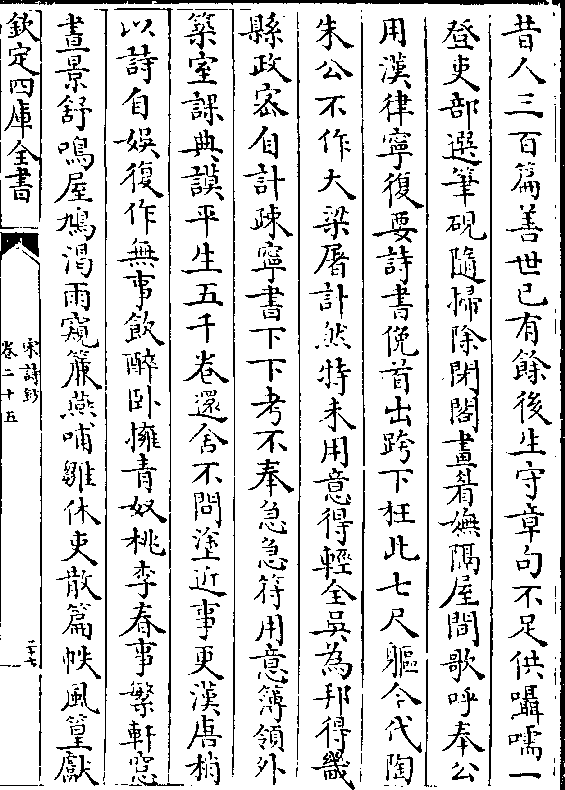 昔人三百篇善世已有餘後生守章句不足供囁嚅一
登吏部選筆硯隨掃除閉閤畫着嫵隔屋間歌呼奉公
用漢律寧復要詩書俛首出跨下枉此七尺軀今代陶
朱公不作大梁屠計然特未用意得輕全吳為邦得畿
縣政密自計疎寧書下下考不奉急急符用意簿領外
築室課典謨平生五千卷還舍不問塗近事更漢唐梢
以詩自娛復作無事飲醉卧擁青奴桃李春事繁軒窓
晝景舒鳴屋鳩渴雨窺簾燕哺雛休吏散篇帙風篁獻
欽定四庫全書
宋詩鈔
卷二十五
三七